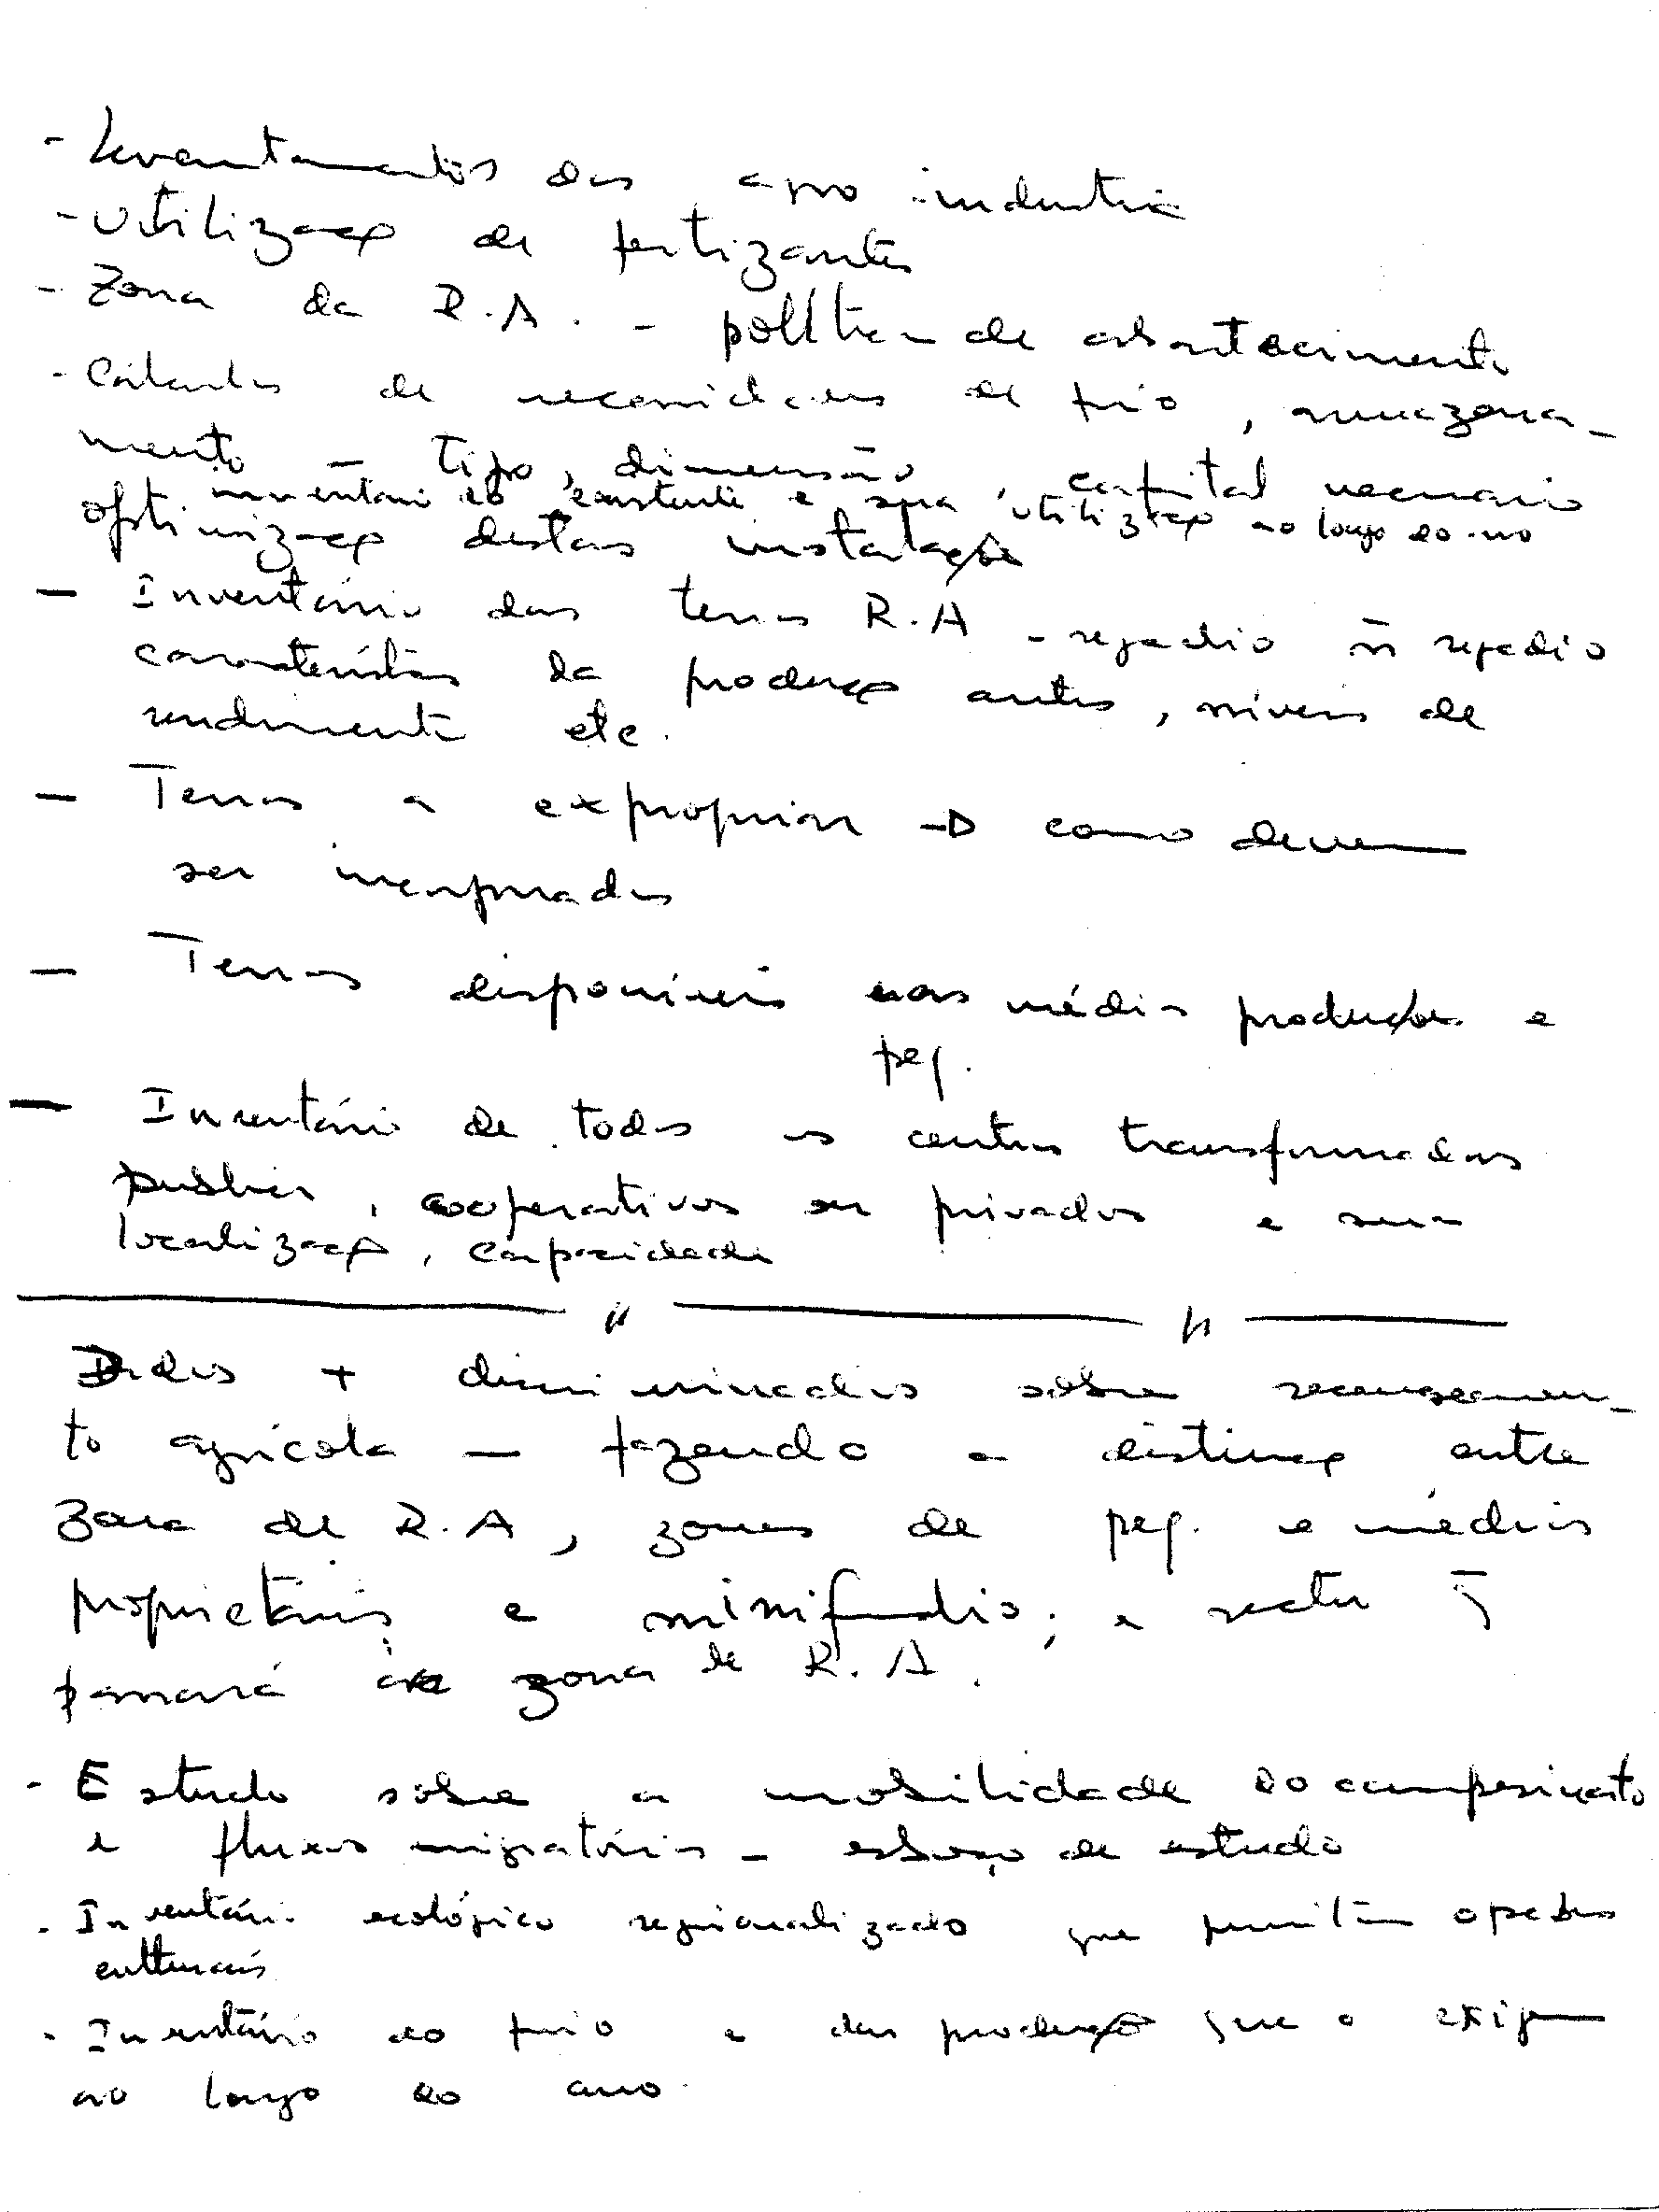 - Levantamentos das agro-industria
- Utilização de fertizantes
- Zona da R.A. - política de abastecimento
- Cálculos de necessidades de frio, armazena-
mento - tipo, dimensão, capital necessário
inventário do existente e sua utilização ao longo do ano
optimização destas instalações
- Inventário das terras R.A - regadio ñ regadio
características da produção antes, níveis de
rendimento etc.
- Terras a expropriar -> como devem
ser incorporadas
- Terras disponíveis nos médios produtores e
peq.
- Inventário de todos os centros transformadores
publicos, cooperativos ou privados e sua
localização, capacidade
Dados + discriminados sobre recenseamen-
to agrícola - fazendo a distinção entre
zona de R.A, zonas de peq. e médios
proprietários e minifundio; e sector q̄
passará à zona de R.A.
- Estudo sobre a mobilidade do campesinato
e fluxos migratórios - esboço de estudo
- Inventário ecológico regionalizado que permita opções
culturais
- Inventário do frio e das produções que o exigem
ao longo do ano.